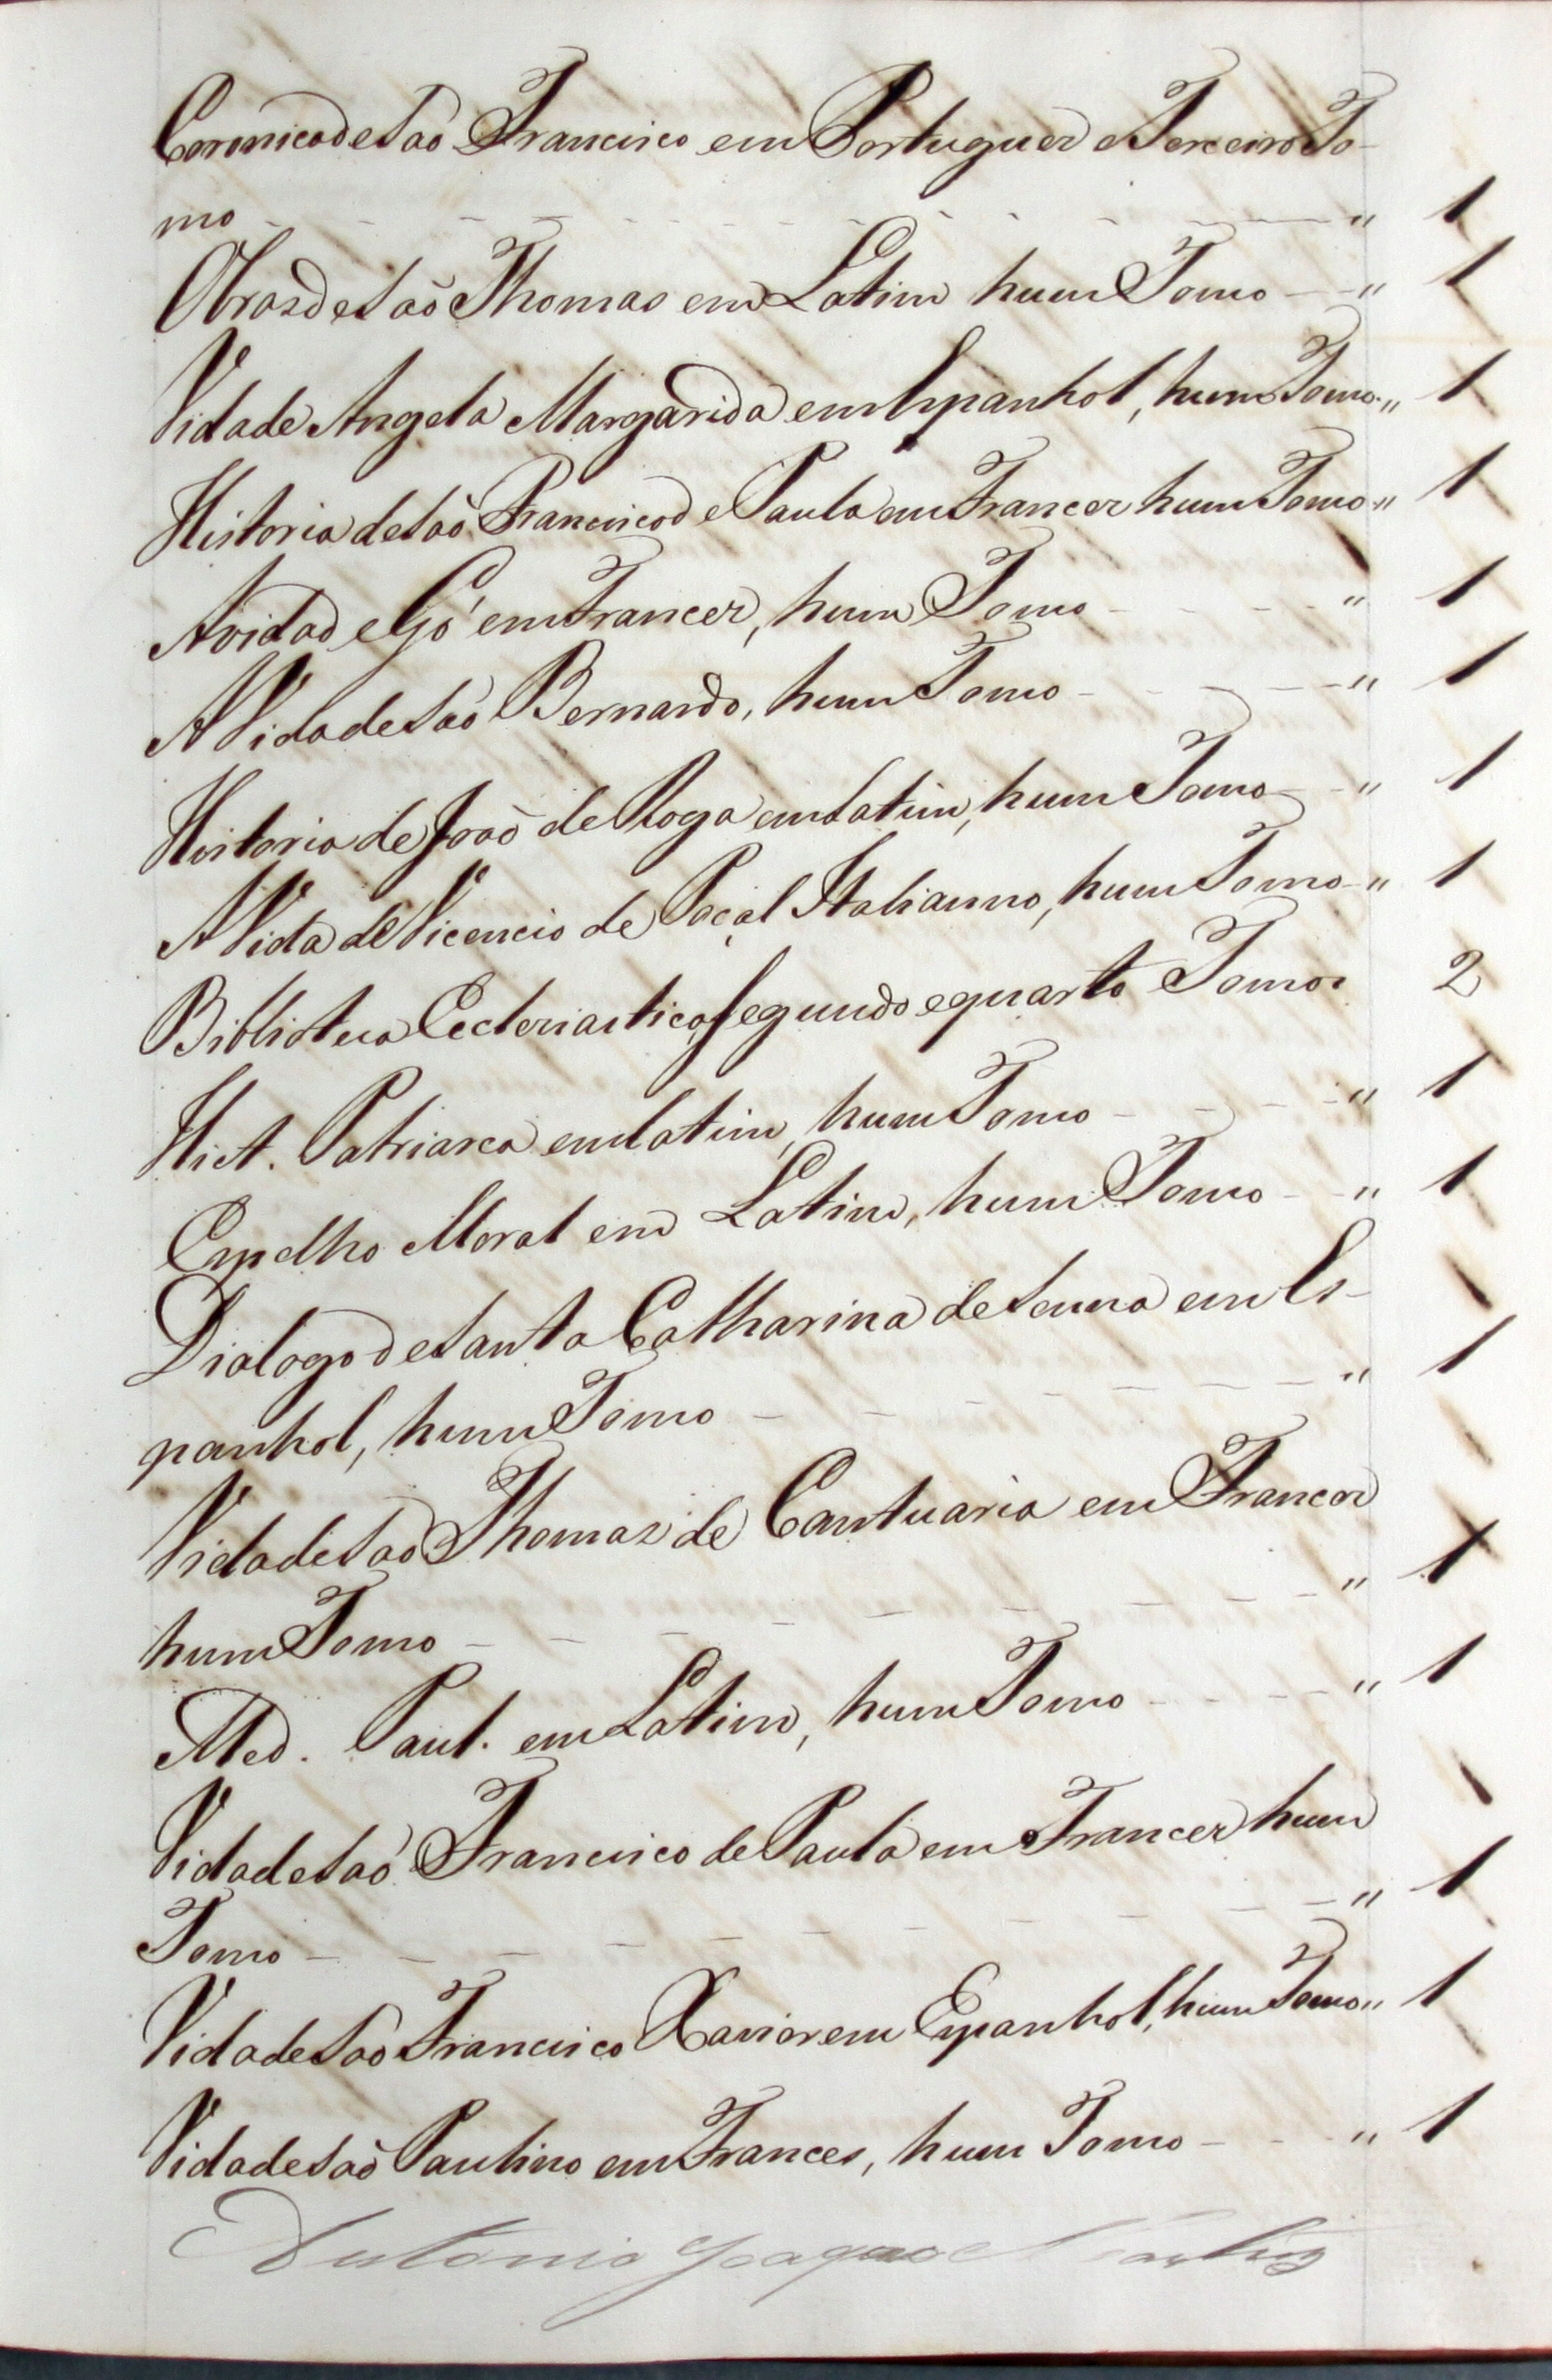 Coronica de Saõ Francisco em Portuguez e Terceiro To-
mo - - - - - - - - - - " 1
Obras de Saõ Thomas em Latim hum Tomo - - " 1
Vida de Angela Margarida em Espanhol, hum Tomo " 1
Historia de Saõ Francisco de Paula em Francez hum Tomo " 1
A vida de Gó em Francez, hum Tomo - - - - " 1
A Vida de Saõ Bernardo, hum Tomo - - - - " 1
Historia de Joaõ de Roga em Latim, hum Tomo - - " 1
A Vida de Vicencio de Paçal Italianno, hum Tomo - " 1
Biblioteca Eccleziastica Segundo e quarto Tomos 2
Hist. Patriarca em latim, hum Tomo - - - - " 1
Espelho Moral em Latim, hum Tomo - - " 1
Dialogo de Santa Catharina de Senna em Es-
panhol, hum Tomo - - - - - - " 1
Vida de Saõ Thomaz de Cantuaria em Francez
hum Tomo - - - - - - - - " 1
Med. Paul. em Latim, hum Tomo - - - - " 1
Vida de Saõ Francisco de Paula em Francez hum
Tomo - - - - - - - - - " 1
Vida de Saõ Francisco Xavior em Espanhol, hum Tomo " 1
Vida de Saõ Paulino em Frances, hum Tomo - - - " 1
Antonio Joaquim